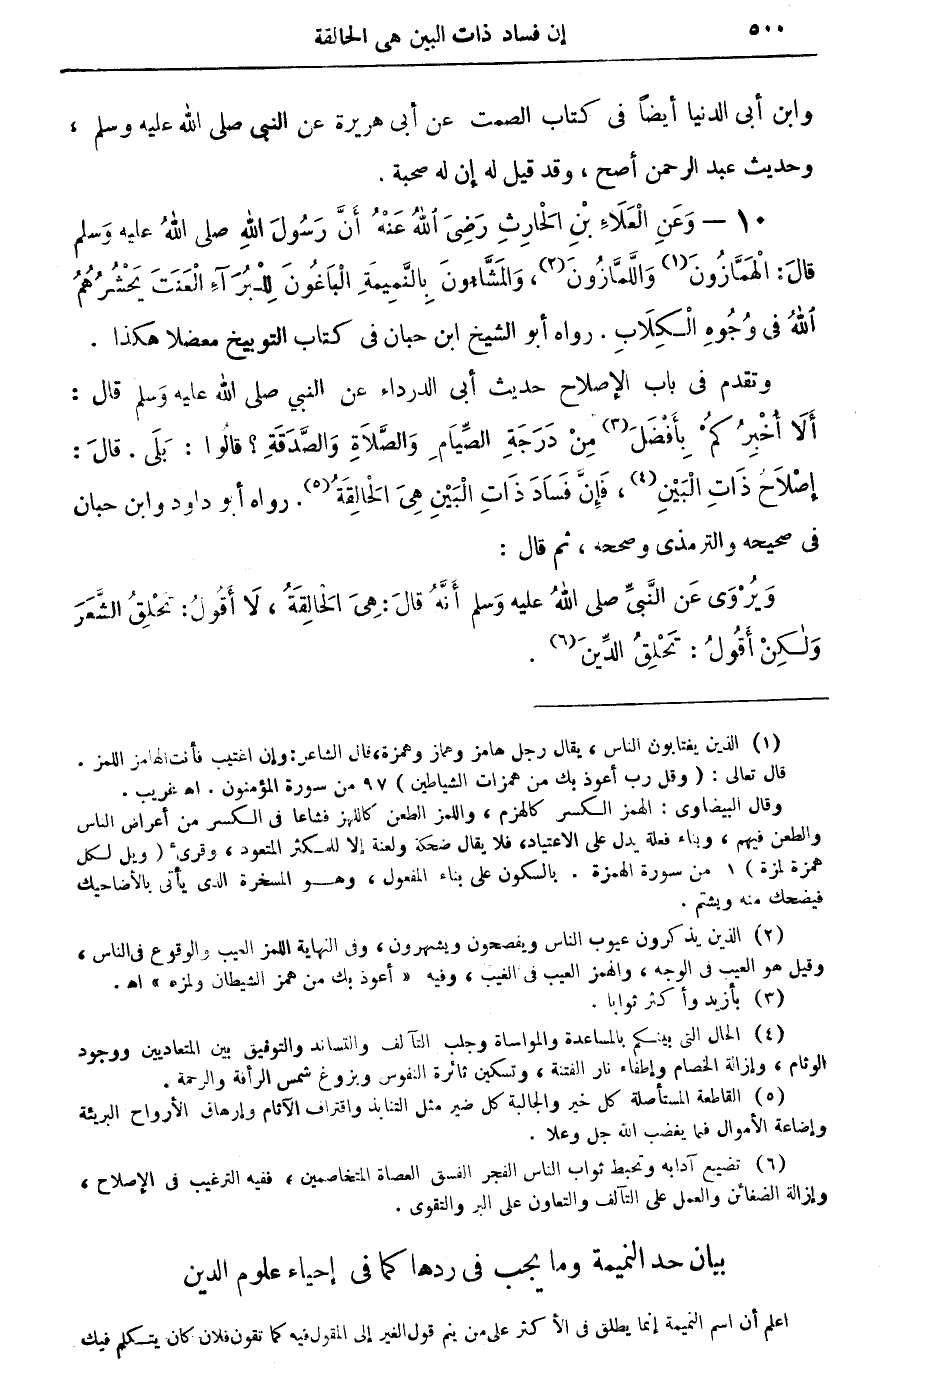 ٥٠٠
إن فساد ذات البين هى الحالقة
وابن أبى الدنيا أيضاً فى كتاب الصمت عن أبى هريرة عن النبى صلى الله عليه وسلم ،
وحديث عبد الرحمن أصح ، وقد قيل له إن له صحبة .
١٠ – وَعَنِ الْعَلَاءِ بْنِ الْحَارِثِ رَضِىَ اللهُ عَنْهُ أَنَّ رَسُولَ اللهِ صلى اللهُ عليه وَسلم
قالَ: الْهَمَّازُونَ(١) وَاللَّمَّازُونَ(٢)، وَالمَشَّاءُونَ بِالنَّمِيمَةِ الْبَاغُونَ لِلْبُرَآءِ الْعَنَتَ يَحْشُرُهُمُ
اللهُ فى وُجُوهِ الْكِلَابِ . رواه أبو الشيخ ابن حبان فى كتاب التوبيخ معضلا هكذا .
وتقدم فى باب الإصلاح حديث أبى الدرداء عن النبي صلى الله عليه وَسلم قال :
أَلَا أُخْبِرُكُمْ بِأَفْضَلَ(٣) مِنْ دَرَجَةِ الصِّيَامِ وَالصَّلَاةِ وَالصَّدَقَةِ ؟ قالُوا : بَلَى . قالَ :
إِصْلَاحُ ذَاتِ الْبَيْنِ(٤) ، فَإِنَّ فَسَادَ ذَاتِ الْبَيْنِ هِىَ الْحَالِقَةُ(٥). رواه أبو داود وابن حبان
فى صحيحه والترمذى وصححه ، ثم قال :
وَيُرْوَى عَن النَّبىِّ صلى اللهُ عليه وَسلم أَنَّهُ قالَ: هِىَ الْحَالِقَةُ ، لَا أَقُولُ: تَحْلِقُ الشَّعَرَ
وَلٰكِنْ أَقُولُ : تَحْلِقُ الدِّينَ(٦) .
(١) الذين يغتابون الناس ، يقال رجل هامز وهماز وهمزة،قال الشاعر:وإن اغتيب فأنت الهامز اللمز .
قال تعالى : ( وقل رب أعوذ بك من همزات الشياطين ) ٩٧ من سورة المؤمنون . اه غريب .
وقال البيضاوى : الهمز الكسر كالهزم ، واللمز الطعن كاللهز فشاعا فى الكسر من أعراض الناس
والطعن فيهم ، وبناء فعلة يدل على الاعتياد، فلا يقال ضحكة ولعنة إلا للمكثر المتعود ، وقرىء ( ويل لكل
همزة لمزة ) ١ من سورة الهمزة . بالسكون على بناء المفعول ، وهـو المسخرة الذى يأتى بالأضاحيك
فيضحك منه ويشتم .
(٢) الذين يذكرون عيوب الناس ويفصحون ويشهرون ، وفى النهاية اللمز العيب والوقوع فى الناس ،
وقيل هو العيب فى الوجه ، والهمز العيب فى الغيب ، وفيه « أعوذ بك من همز الشيطان ولمزه » اه .
(٣) بأزيد وأكثر ثوابا .
(٤) الحال التى بينكم بالمساعدة والمواساة وجلب التآلف والتساند والتوفيق بين المتعاديين ووجود
الوئام ، وإزالة الخصام وإطفاء نار الفتنة ، وتسكين ثائرة النفوس وبزوغ شمس الرأفة والرحمة .
(٥) القاطعة المستأصلة كل خير والجالبة كل ضير مثل التنابذ واقتراف الآثام وإرهاق الأرواح البريئة
وإضاعة الأموال فيما يغضب الله جل وعلا .
(٦) تضيع آدابه وتحبط ثواب الناس الفجر الفسق العصاة المتخاصمين ، ففيه الترغيب فى الإصلاح ،
وإزالة الضغائن والعمل على التآلف والتعاون على البر والتقوى .
بيان حد النميمة وما يجب فى ردها كما فى إحياء علوم الدين
اعلم أن اسم النميمة إنما يطلق فى الأكثر على من ينم قول الغير إلى المقول فيه كما تقول فلان كان يتكلم فيك